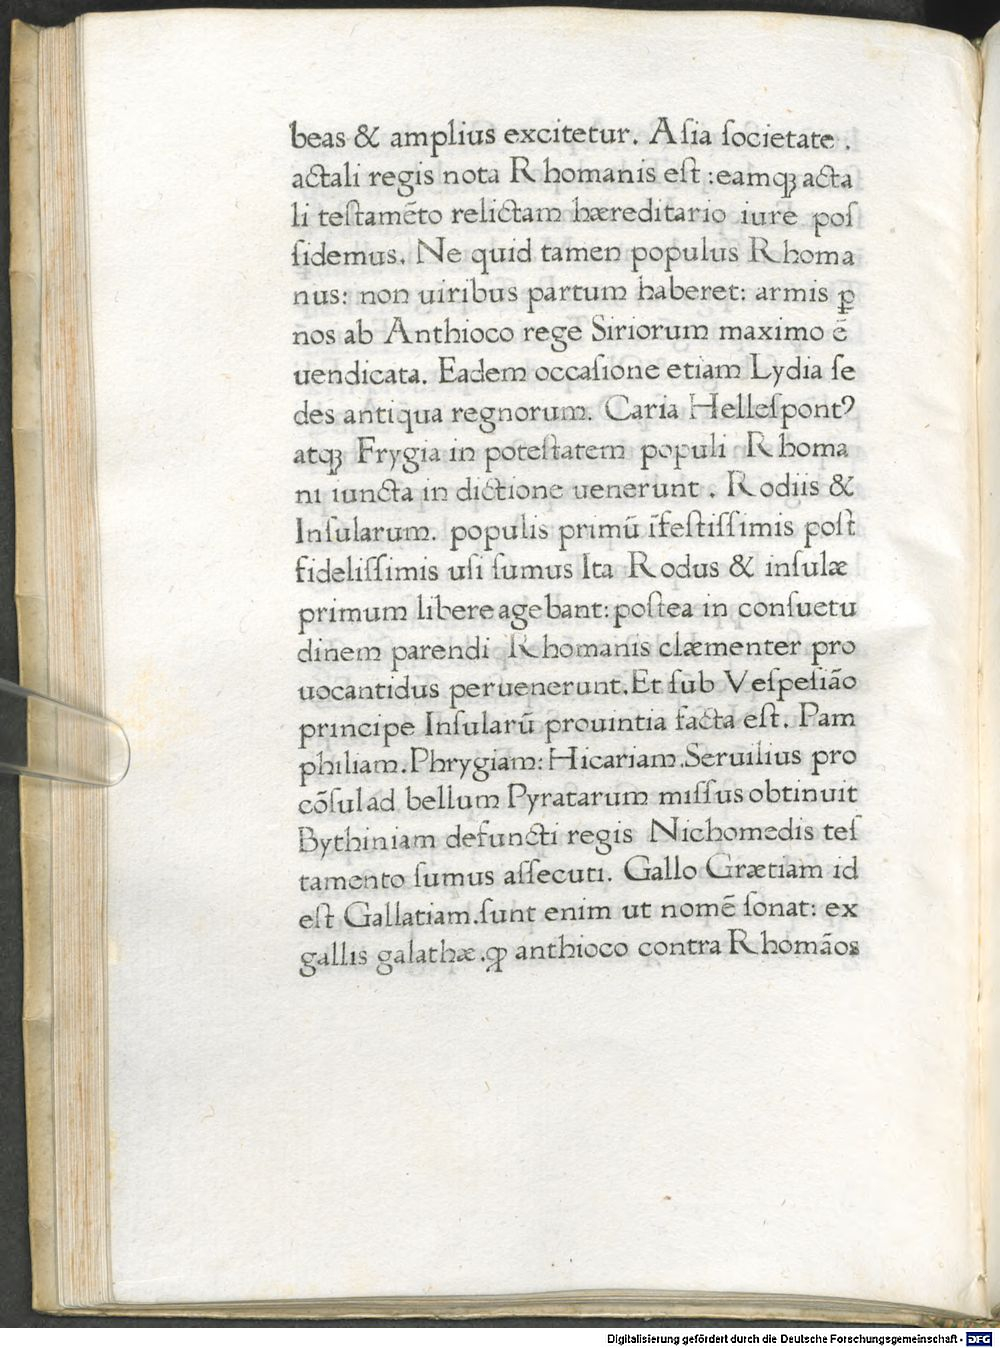 beas & amplius excitetur. Aſia ſocietate .
actali regis nota Rhomanis eſt :eamqꝫ acta
li teſtamēto relictam hæreditario iure poſ
ſidemus. Ne quid tamen populus Rhoma
nus: non uiribus partum haberet: armis ꝑ
nos ab Anthioco rege Siriorum maximo ē
uendicata. Eadem occaſione etiam Lydia ſe
des antiqua regnorum. Caria Helleſpontꝰ
atqꝫ Frygia in poteſtatem populi Rhoma
ni iuncta in dictione uenerunt . Rodiis &
Inſularum. populis primū īfeſtiſſimis poſt
fideliſſimis uſi ſumus Ita Rodus & inſulæ
primum libere agebant: poſtea in conſuetu
dinem parendi Rhomanis clæmenter pro
uocantidus peruenerunt. Et ſub Veſpeſiāo
principe Inſularū prouintia facta eſt. Pam
philiam. Phrygiam: Hicariam. Seruilius pro
cōſul ad bellum Pyratarum miſſus obtinuit
Bythiniam defuncti regis Nichomedis teſ
tamento ſumus aſſecuti. Gallo Grætiam id
eſt Gallatiam. ſunt enim ut nomē ſonat: ex
gallis galathæ. ꝙ anthioco contra Rhomāos
Digitalisierung gefördert durch die Deutsche Forschungsgemeinschaft - DFG